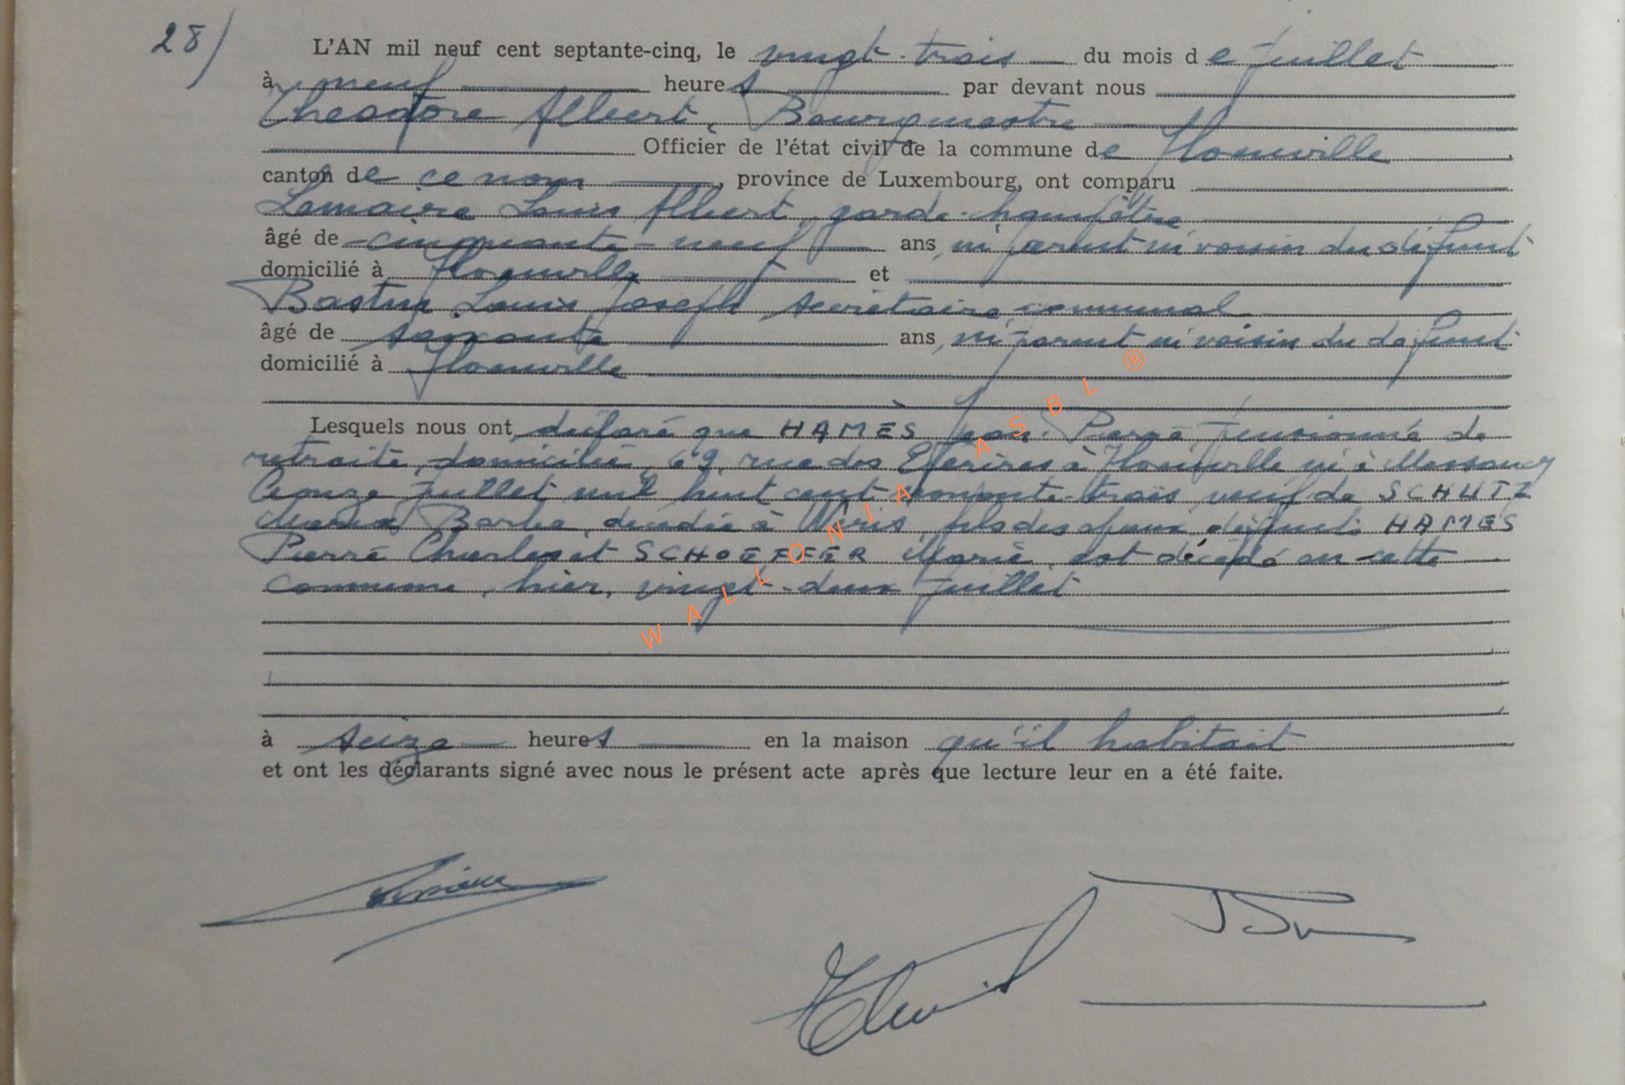 28/
L'AN mil neuf cent septante-cinq, le vingt-trois du mois de juillet
à neuf heures par devant nous
Théodore Albert, Bourgmestre
Officier de l'état civil de la commune de Florenville
canton de ce nom, province de Luxembourg, ont comparu
Lemaire Louis Albert, garde-champêtre
âgé de cinquante-neuf ans, ni parent ni voisin du défunt
domicilié à Florenville et
Bastin Louis Joseph secrétaire communal
âgé de soixante ans, ni parent ni voisin du défunt
domicilié à Florenville
Lesquels nous ont déclaré que HAMÈS Jean-Pierre, pensionné de
retraite, domicilié, 69, rue des Epérires à Florenville né à Messancy
le onze juillet mil huit cent nonante-trois veuf de SCHUTZ
Maria Barbe, décédée à Wéris, fils des époux défunts HAMES
Pierre Charles et SCHOEFFER Marie, est décédé en cette
commune, hier, vingt-deux juillet
à seize heures en la maison qu'il habitait
et ont les déclarants signé avec nous le présent acte après que lecture leur en a été faite.
WALLONIA ASBL ®